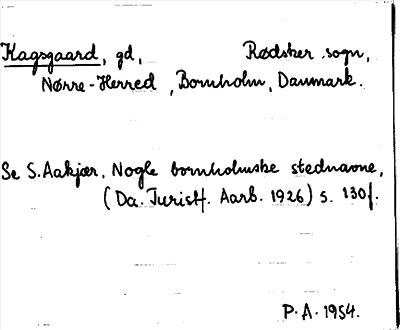 Kagsgaard, gd, Rødsker sogn,
Nørre-Herred, Bornholm, Danmark.
Se S. Aakjær. Nogle bornholmske stednavne,
(Da. Turistf. Aarb. 1926) s. 130f.
P.A. 1954.